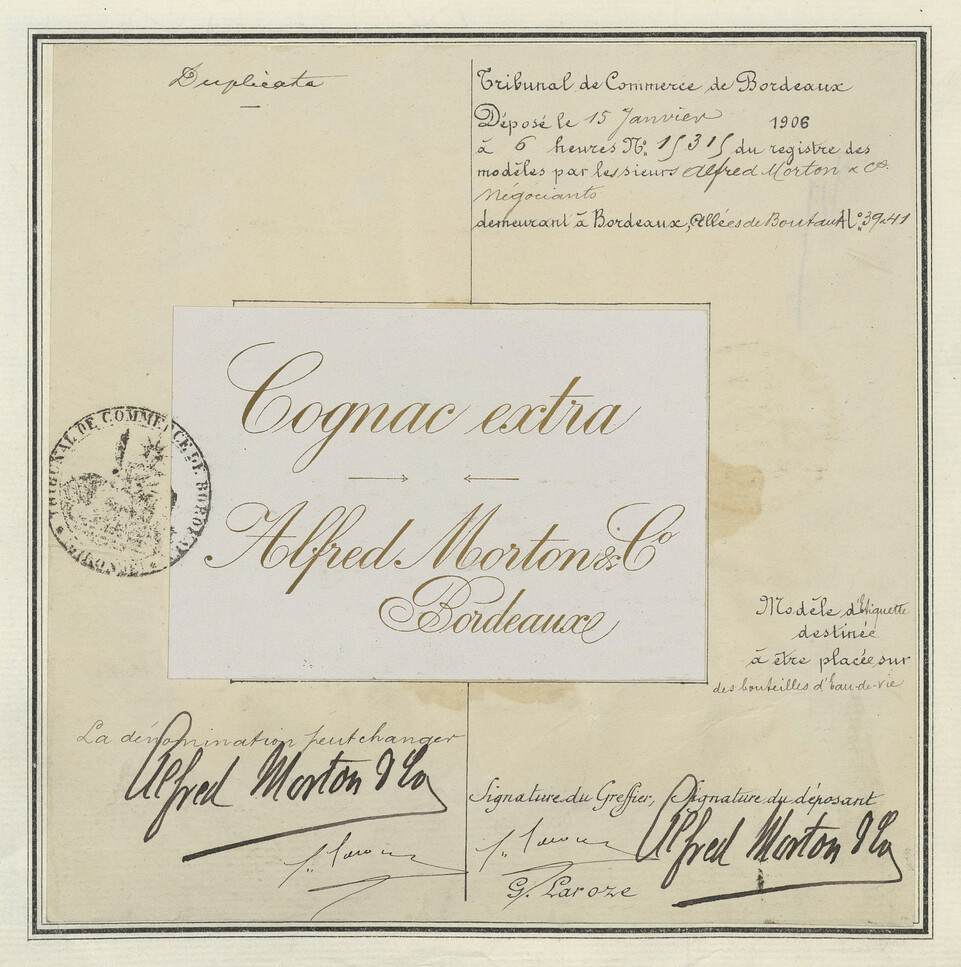 Duplicata
Tribunal de Commerce de Bordeaux
Déposé le 15 Janvier 1906
à 6 heures No. 1531 du registre des
modèles par les sieurs Alfred Morton & Co.
Négociants
demeurant à Bordeaux, Allées de Boutaut No. 39-41
Cognac extra
Alfred Morton & Co
Bordeaux
TRIBUNAL DE COMMERCE DE BORDEAUX
Modèle d'Etiquette
destinée
à être placée sur
des bouteilles d'Eau-de-vie
La dénomination peut changer
Alfred Morton & Co
Signature du Greffier, Signature du déposant
Alfred Morton & Co
G. Laroze